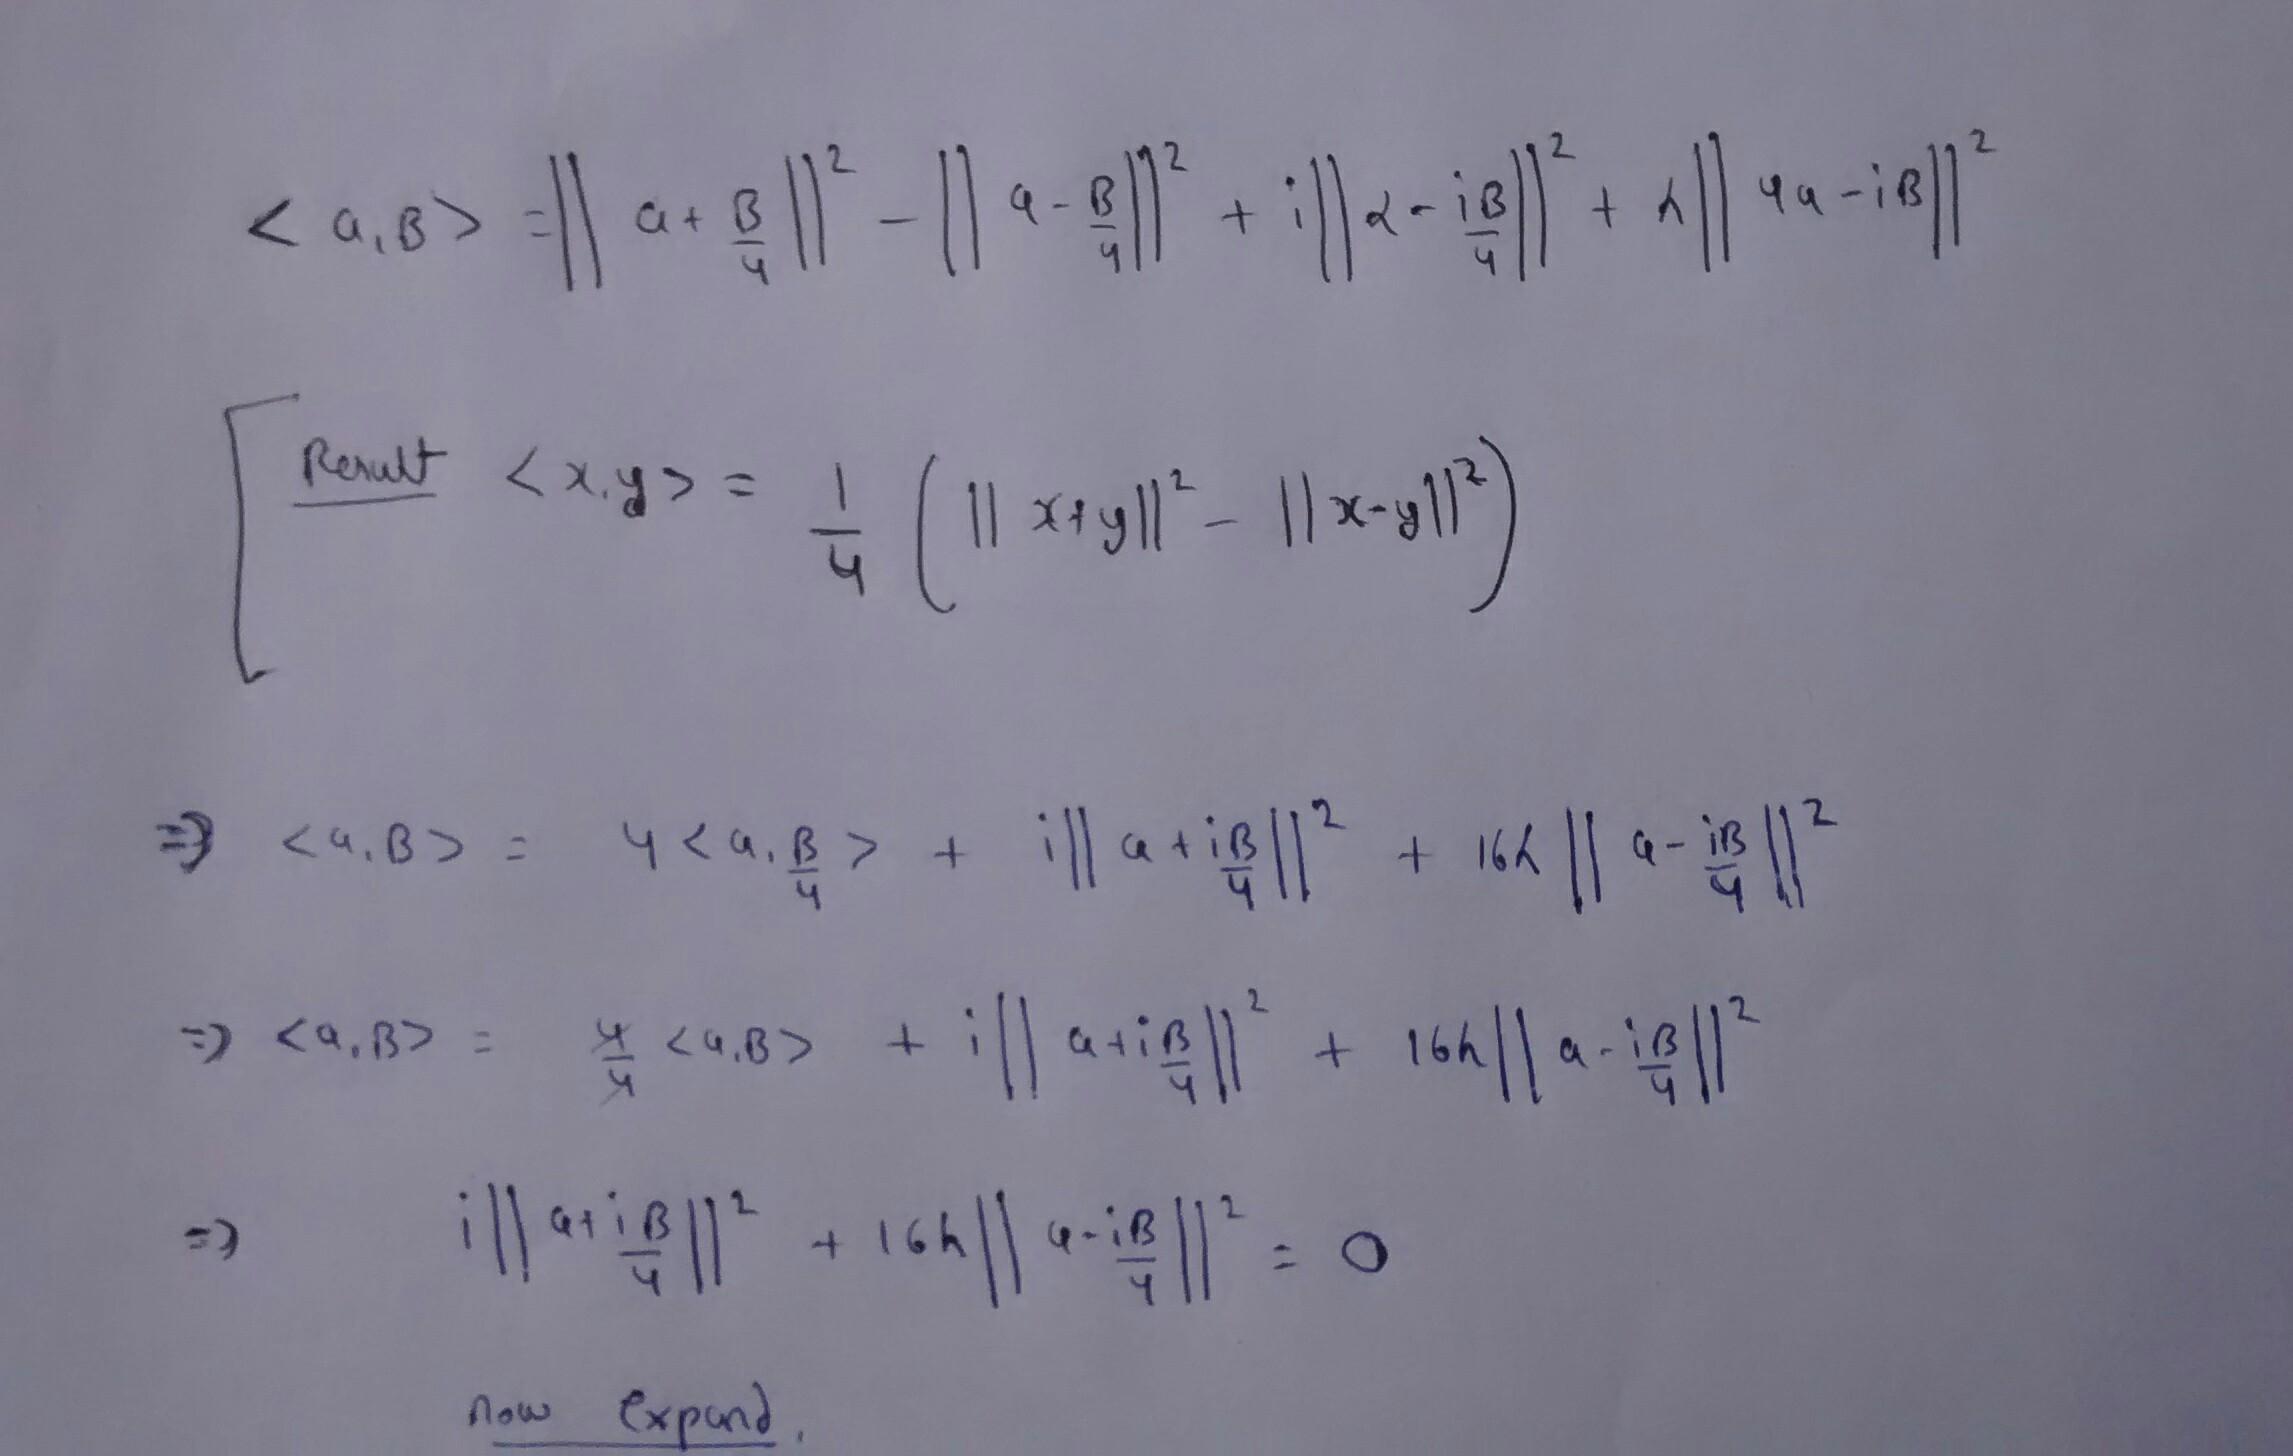 < a, B > = || a + B/4 ||² - || a - B/4 ||² + i || α - iB/4 ||² + h || 4a - iB ||²
Result <x,y> = 1/4 ( || x+y ||² - || x-y ||² )
⇒ <a,B> = 4 <a, B/4> + i || a + iB/4 ||² + 16h || a - iB/4 ||²
⇒ <a,B> = 4/4 <a,B> + i || a + iB/4 ||² + 16h || a - iB/4 ||²
⇒ i || a + iB/4 ||² + 16h || a - iB/4 ||² = 0
now expand.